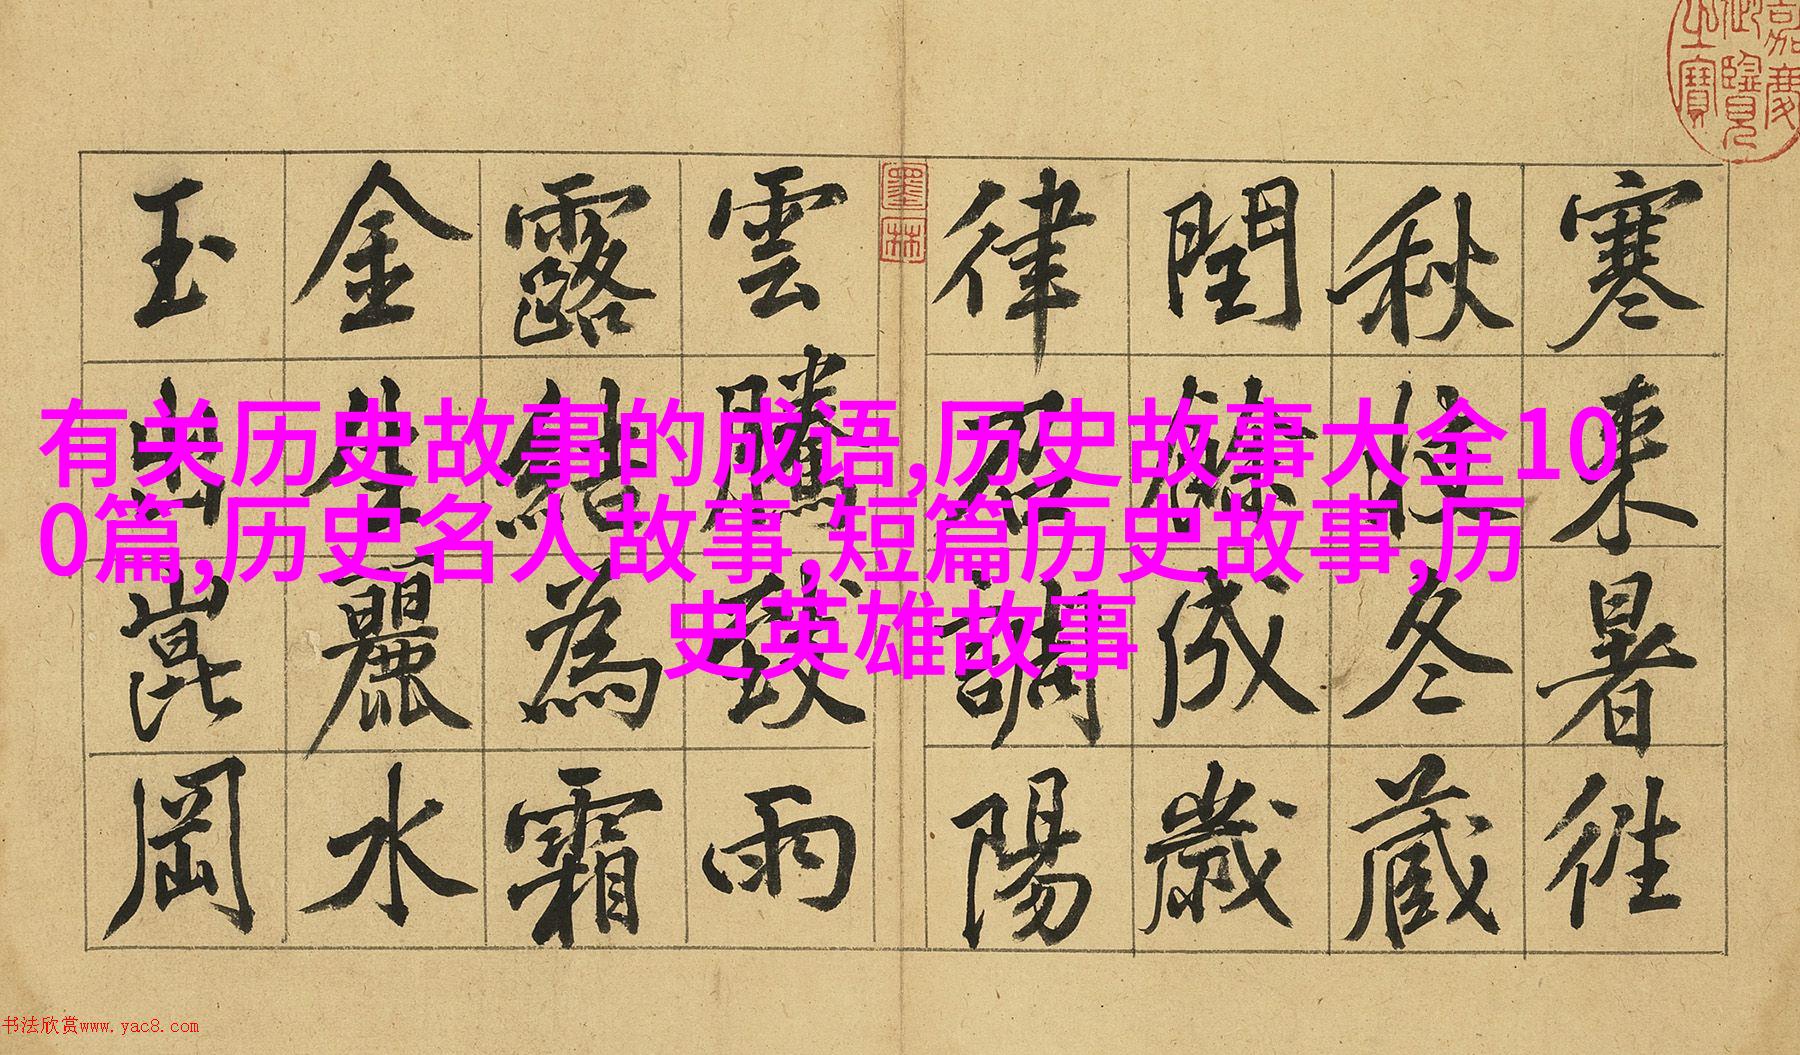 有关历史故事的成语,历史故事大全10
0篇,历史名人故事,短篇历史故事,历
史英雄故事
寒來暑往
秋收冬藏
閏餘成歲
律召調陽
雲騰致雨
露結為霜
金生麗水
玉出崑岡
嘉慶御覽之寶
墨林
书法欣赏www.yac8.com